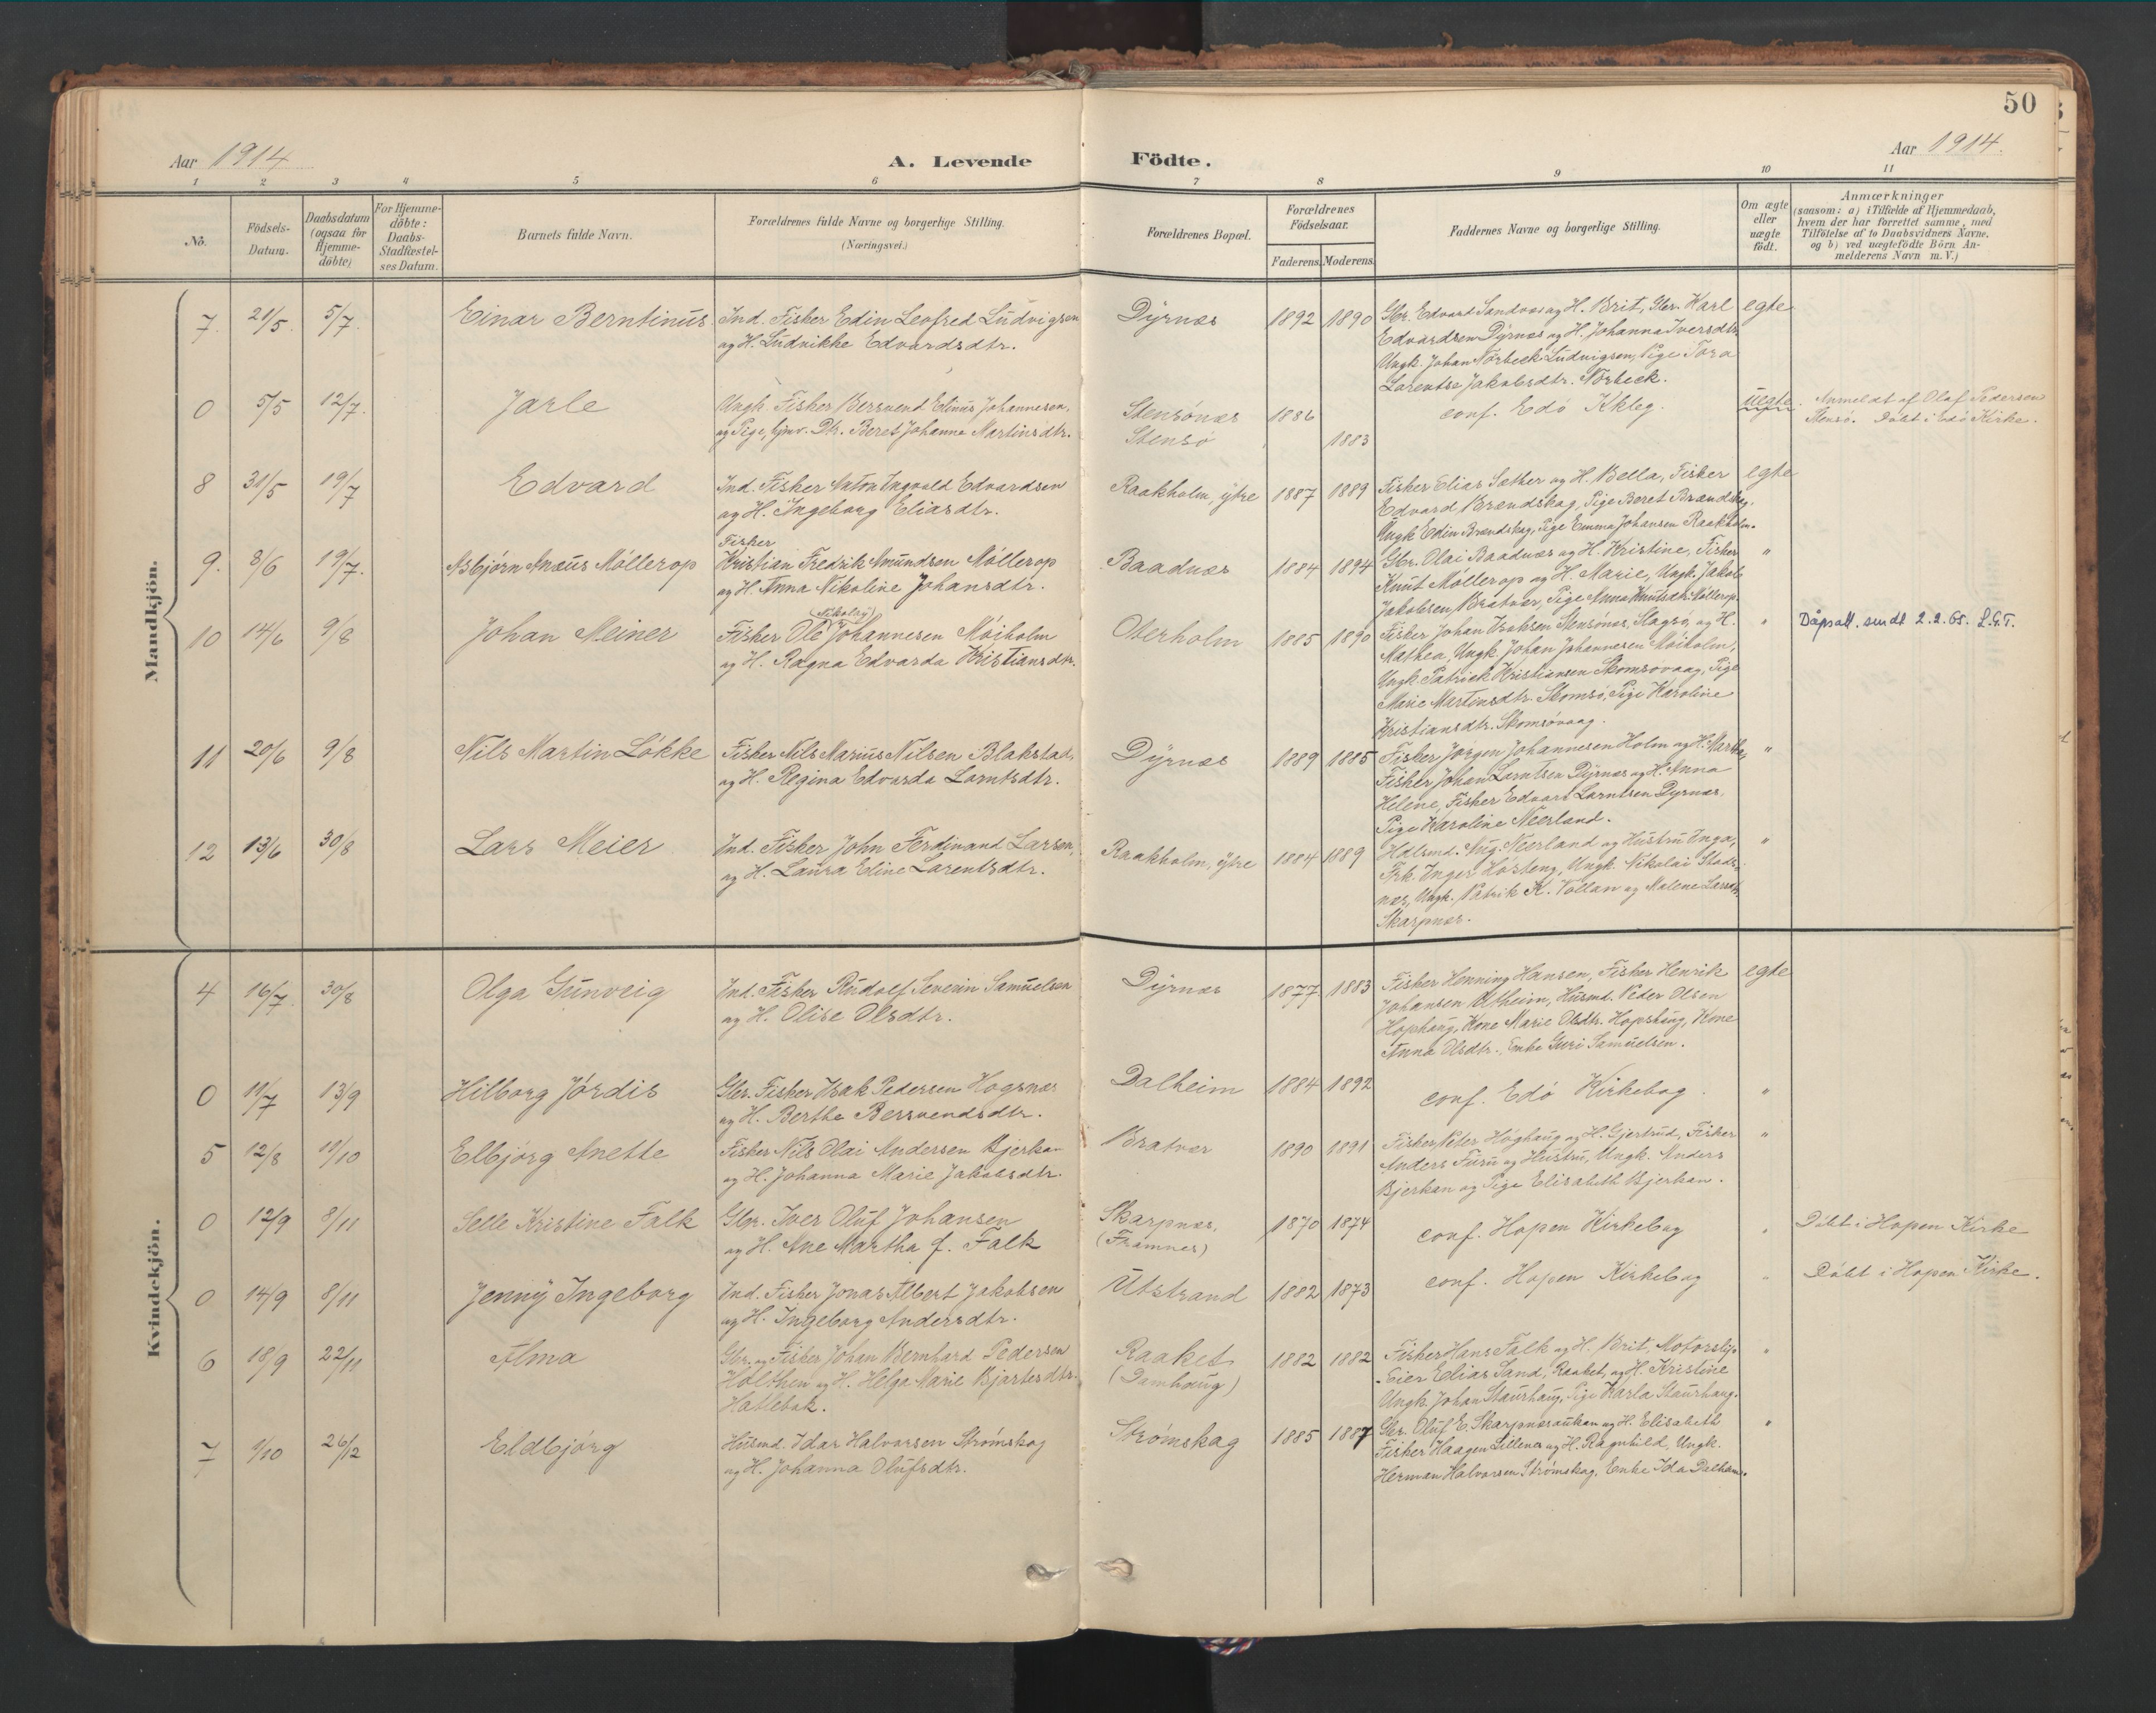 50
Aar 1914
A. Levende
Födte.
Aar 1914.
1 2 3 4 5 6 7 8 9 10 11
No.
Födsels-
Datum.
Daabsdatum
(ogsaa for
Hjemme-
döbte)
For Hjemme-
döbte:
Daabs-
Stadfæstel-
ses Datum.
Barnets fulde Navn.
Forældrenes fulde Navne og borgerlige Stilling.
(Næringsvei.)
Forældrenes Bopæl.
Forældrenes
Födselsaar.
Faderens. Moderens.
Faddernes Navne og borgerlige Stilling.
Om ægte
eller
uægte
födt.
Anmærkninger
(saasom: a) i Tilfælde af Hjemmedaab,
hvem der har forrettet samme, med
Tilföielse af to Daabsvidners Navne.
og b) ved uægtefödte Börn An-
melderens Navn m. V.)
Mandkjön.
7. 21/5. 5/7.
Einar Berntinus
Ind. Fisker Edin Leofred Ludvigsen
og H. Ludvikke Edvardsdtr.
Dyrnæs
1892 1890
Gbr. Edvard Sandvæs og H. Brit, Gbr. Karl
Edvardsen Dyrnæs og H. Johanna Iversdtr.
Ungk. Johan Nørbeck Ludvigsen, Pige Tora
Larentse Jakobsdtr. Nørbeck.
egte
0 5/5 12/7.
Jarle
Ungk. Fisker Bersvend Edinus Johannesen,
og Pige, hjmv. Dtr. Beret Johanna Martinsdtr.
Stensönæs
Stensö
1886
1883
conf. Edö Kkleg.
uegte.
Anmeldt af Olaf Pedersen
Stensö. Döbt i Edö Kirke.
8 31/5 19/7
Edvard
Ind. Fisker Anton Ingvald Edvardsen
og H. Ingeborg Eliasdtr.
Raakholm, ytre
1887 1889
Fisker Elias Sæther og H. Bella, Fisker
Edvard Brændskag, Pige Beret Brændskag,
Ungk Edin Brændskag, Pige Emma Johansen Raakholm.
egte
9. 8/6 19/7.
Asbjørn Anæus Möllerop
Fisker
Kristian Fredrik Amundsen Möllerop
og H. Anna Nikoline Johansdtr.
Baadnæs
1884 1894
Gbr. Olai Baadnæs og H. Kristine, Fisker
Knut Möllerop og H. Marie, Ungk. Jakob
Jakobsen Bratvær, Pige Anna Knutsdtr. Möllerop.
"
10 14/6 9/8
Johan Meiner
(Nikolay)
Fisker Ole Johannesen Möiholm
og H. Ragna Edvarda Kristiansdtr.
Oterholm
1885 1890
Fisker Johan Isaksen Stensönæs, Slagsö, og H.
Mathea, Ungk. Johan Johannesen Möiholm,
Ungk. Patrick Kristiansen Skomsövaag, Pige
Marie Martinsdtr. Skomsö, Pige Karoline
Kristiansdtr. Skomsövaag.
"
Dåpsatt. sendt 2.2.65. L.G.T.
11 20/6 9/8
Nils Martin Lökke
Fisker Nils Marius Nilsen Blakstad,
og H. Regina Edvarda Larntsdtr.
Dyrnæs
1889 1885
Fisker Jörgen Johannesen Holm og H. Martha,
Fisker Johan Larntsen Dyrnæs og H. Anna
Helene, Fisker Edvard Larntsen Dyrnæs,
Pige Karoline Neerland.
"
12 13/6 30/8
Lars Meier
Ind. Fisker John Ferdinand Larsen,
og H. Laura Edine Larentsdtr.
Raakholm, ytre
1884 1889
Hdlsmd. Aug. Neerland og Hustru Inga,
Frk. Inger Hösteng, Ungk. Nikolai Stads-
næs, Ungk. Patrik K. Vollan og Malene Larsdtr,
Skarpnæs.
"
Kvindekjön.
4 16/7. 30/8
Olga Gunveig
Ind. Fisker Rudolf Severin Samuelsen
og H. Olise Olsdtr.
Dyrnæs
1877 1883
Fisker Henning Hansen, Fisker Henrik
Johansen Utheim, Husmd. Peder Olsen
Hopshaug, Kone Marie Olsdtr. Hopshaug, Kone
Anna Olsdtr., Enke Guri Samuelsen.
egte
0 11/7 13/9
Hilborg Jördis
Gbr. Fisker Isak Pedersen Hogsnæs
og H. Berthe Bersvendsdtr.
Dalheim
1884 1892
conf. Edö Kirkebog.
"
5 12/8 11/10
Elbjörg Anette
Fisker Nils Olai Andersen Bjerkan
og H. Johanna Marie Jakobsdtr.
Bratvær
1890 1891
Fisker Peter Höghaug og H. Gjertrud, Fisker
Anders Furu og Hustru, Ungk. Anders
Bjerkan og Pige Elisabeth Bjerkan.
"
0 12/9 8/11
Selle Kristine Falk
Gbr. Iver Oluf Johansen
og H. Ane Martha f. Falk
Skarpnæs,
(Framnes)
1870 1874
conf. Hopen Kirkebog
"
Döbt i Hopen Kirke
0 14/9 8/11
Jenny Ingeborg
Ind. Fisker Jonas Albert Jakobsen
og H. Ingeborg Andersdtr.
Utstrand
1882 1873
conf. Hopen Kirkebog
"
Döbt i Hopen Kirke.
6 18/9 22/11
Alma
Gbr. og Fisker Johan Bernhard Pedersen
Holthen og H. Helga Marie Bjartesdtr.
Hatlebak.
Raaket
(Damhaug)
1882 1882
Fisker Hans Falk og H. Brit, Motorslip-
Eier Elias Sand, Raaket, og H. Kristine
Ungk. Johan Staurhaug, Pige Karla Staurhaug.
"
7 9/10 26/12
Eldbjörg
Husmd. Idar Halvorsen Strömskag
og H. Johanna Olufsdtr.
Strömskag
1885 1887
Gbr. Oluf E. Skarpnæsaukan og H. Elisabeth
Fisker Haagen Lillenes og H. Ragnhild, Ungk.
Herman Halvorsen Strömskag, Enke Ida Dalham.
"